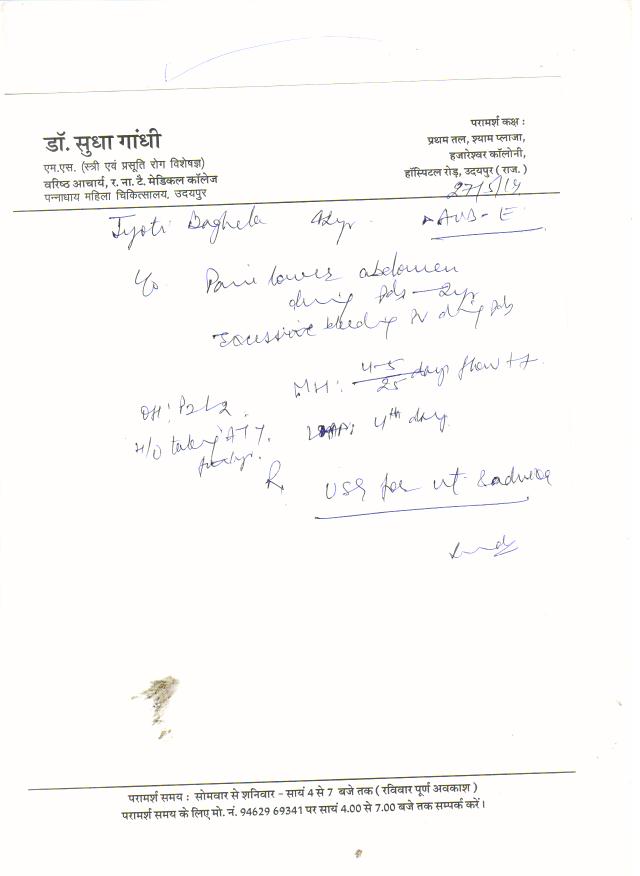 डॉ. सुधा गांधी
एम.एस. (स्त्री एवं प्रसूति रोग विशेषज्ञ)
वरिष्ठ आचार्य, र. ना. टै. मेडिकल कॉलेज
पन्नाधाय महिला चिकित्सालय, उदयपुर
परामर्श कक्ष :
प्रथम तल, श्याम प्लाजा,
हजारेश्वर कॉलोनी,
हॉस्पिटल रोड़, उदयपुर ( राज. )
27/5/19
Jyoti Baghela 42yr. AUB-E
c/o Pain lower abdomen
during pds - 2yr
Excessive bleeding PV during pds
MH: 4-5/25 days flow ++.
OH: P2L2. LMP: 4th day
H/O taking ATT.
Rx USG for ut. & adnexa
परामर्श समय : सोमवार से शनिवार - सायं 4 से 7 बजे तक ( रविवार पूर्ण अवकाश )
परामर्श समय के लिए मो. नं. 94629 69341 पर सायं 4.00 से 7.00 बजे तक सम्पर्क करें।